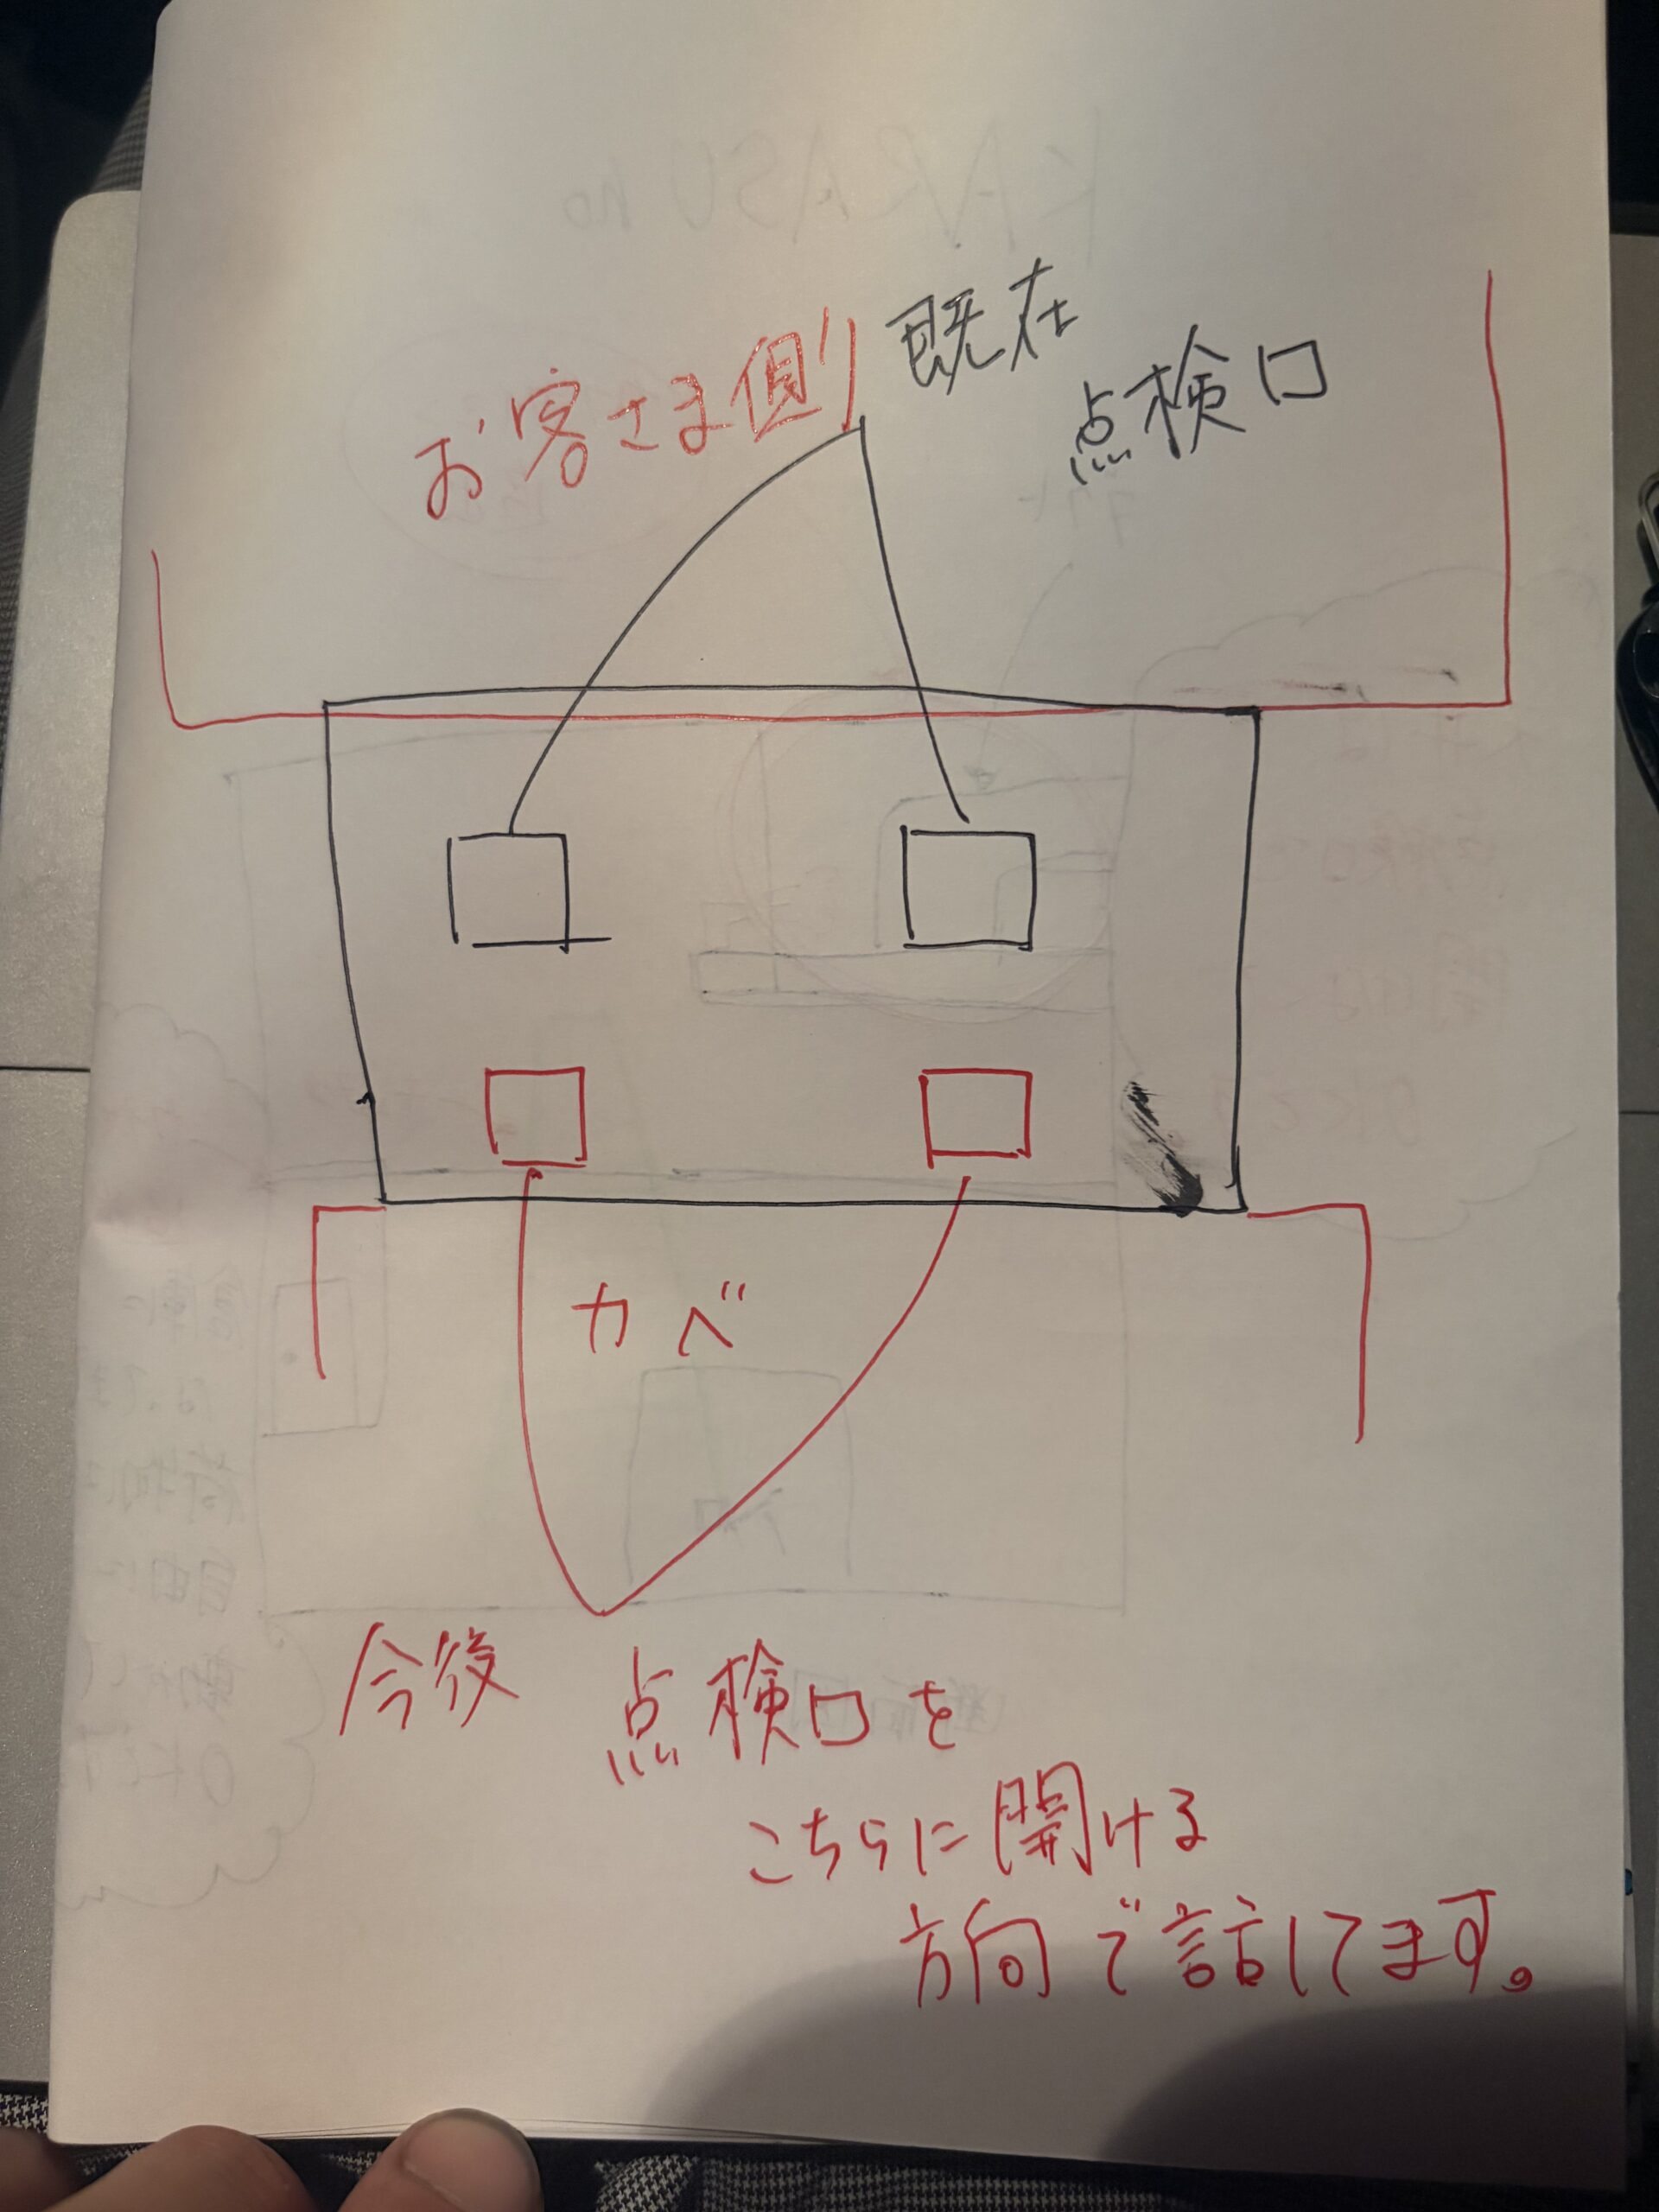 お客さま側
既在
点検口
カベ
今後 点検口を
こちらに開ける
方向で話してます。